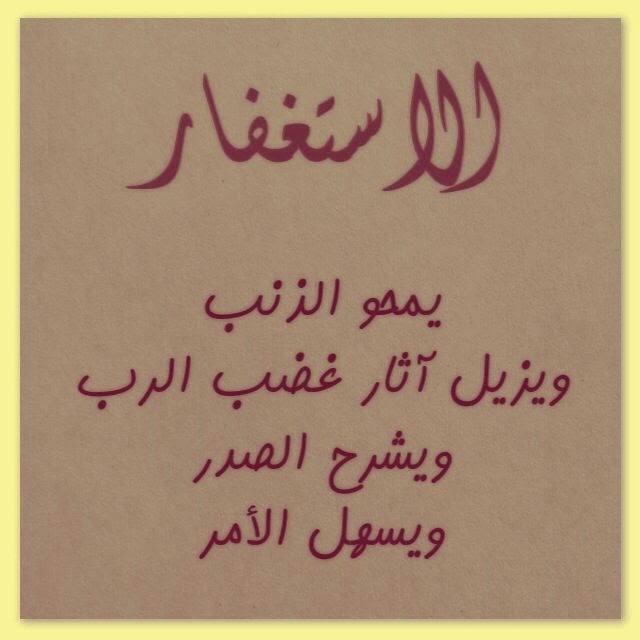 الاستغفار
يمحو الزنب
ويزيل آثار غضب الرب
ويشرح الصدر
ويسهل الأمر